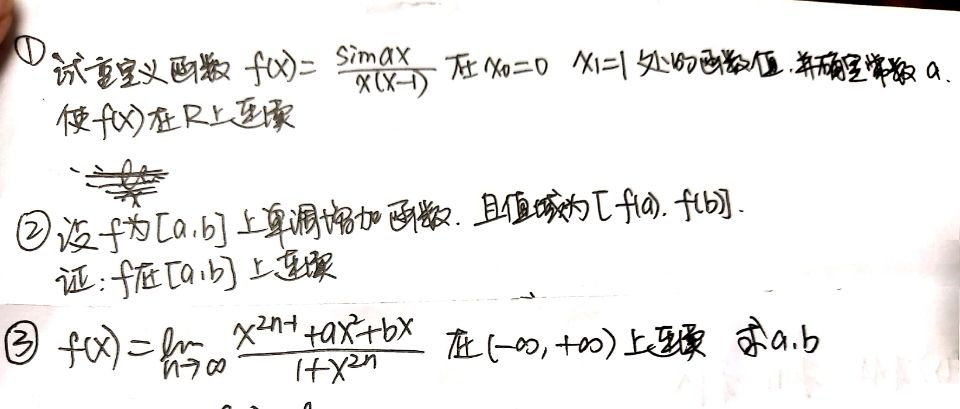 ① 试重定义函数 f(x)= sinax / x(x-1) 在 x₀=0 x₁=1 处的函数值.并确定常数 a.
使 f(x) 在 R 上连续
② 设 f 为 [a,b] 上单调增加函数. 且值域为 [f(a), f(b)].
证: f 在 [a,b] 上连续
③ f(x) = lim n→∞ x²ⁿ⁻¹+ax²+bx / 1+x²ⁿ 在 (-∞, +∞) 上连续 求 a.b